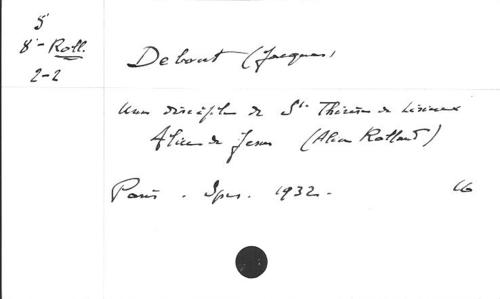 S
8° - Roll.
2-2
Debout (Jacques)
Une disciple de Ste Thérèse de Lisieux
Alice de Jésus (Alice Rolland)
Paris. Spes. 1932.